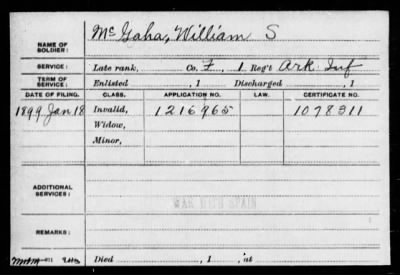 NAME OF SOLDIER: McGaha, William S
SERVICE: Late rank, Co. F, 1 Reg't Ark. Inf
TERM OF SERVICE: Enlisted , 1 Discharged , 1
DATE OF FILING. CLASS. APPLICATION NO. LAW. CERTIFICATE NO.
1899 Jan 18 Invalid, 1216965 1078311
Widow,
Minor,
ADDITIONAL SERVICES:
WAR WITH SPAIN
REMARKS:
Died , 1 , at